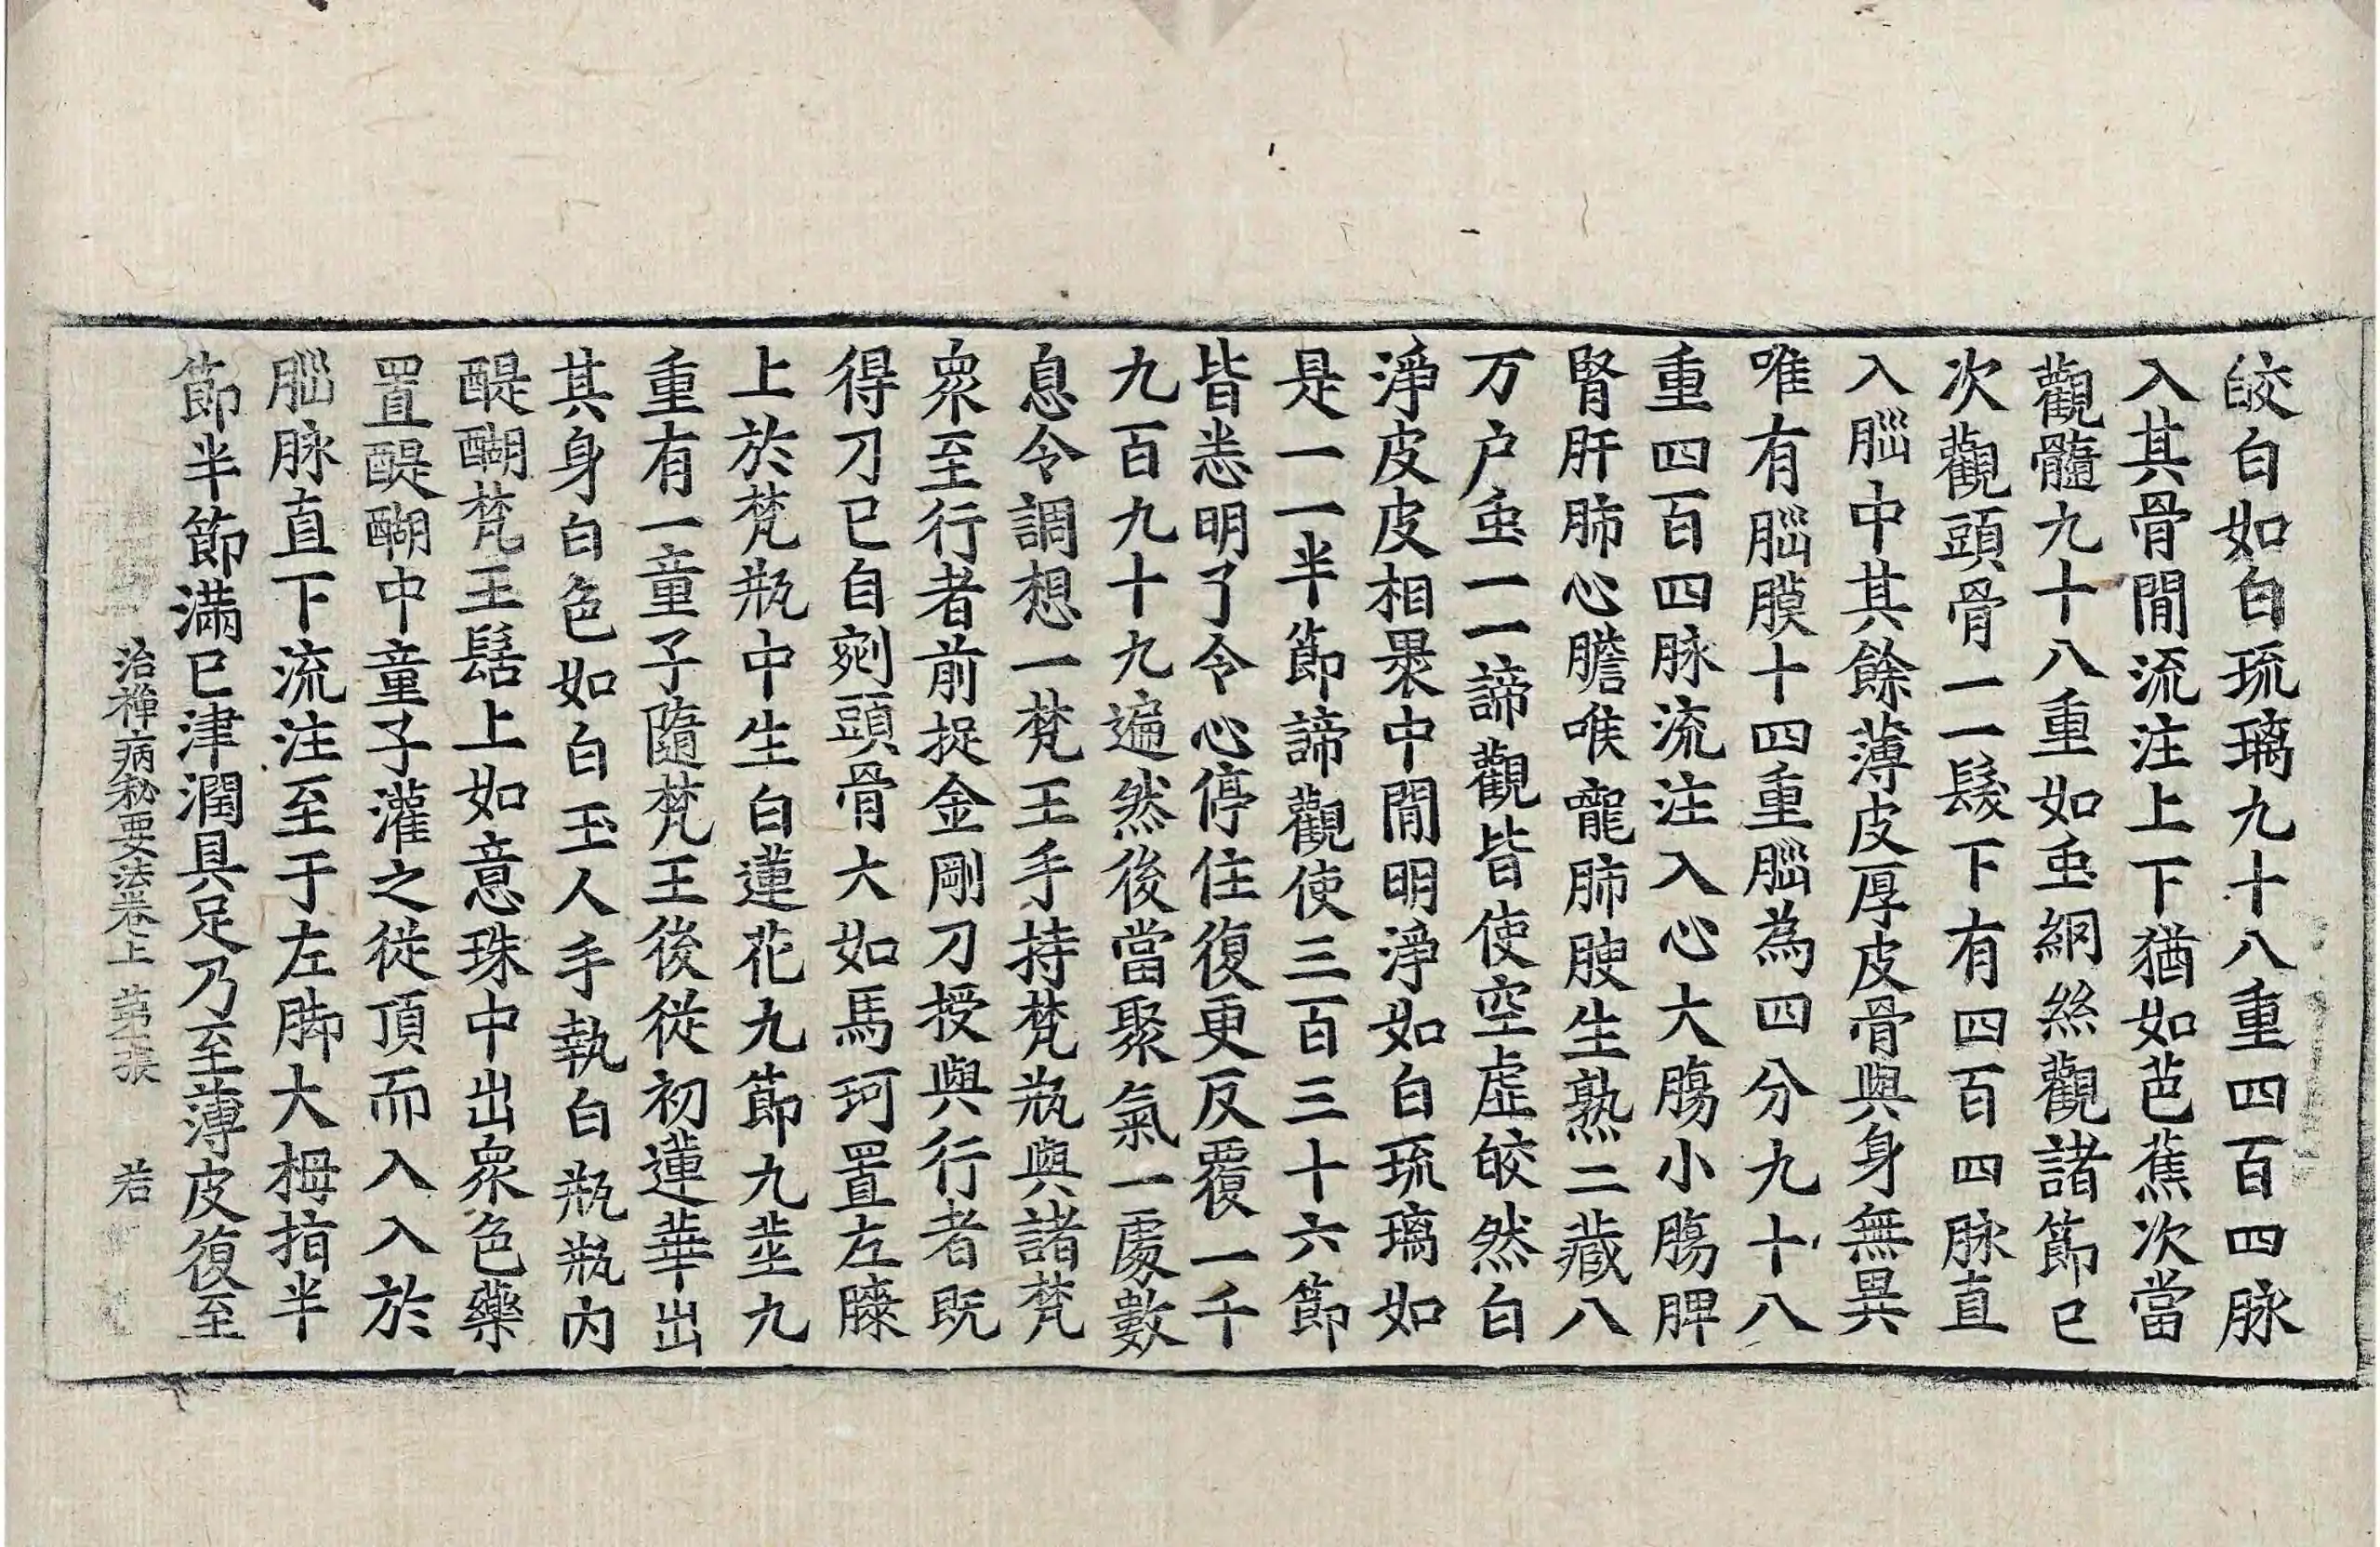 皎白如白琉璃九十八重四百四脉
入其骨間流注上下猶如芭蕉次當
觀髓九十八重如䖝網絲觀諸節已
次觀頭骨一一髮下有四百四脉直
入腦中其餘薄皮厚皮骨與身無異
唯有腦膜十四重腦為四分九十八
重四百四脉流注入心大膓小膓脾
腎肝肺心膽喉嚨肺腴生熟二藏八
万户䖝一一諦觀皆使空虛皎然白
淨皮皮相裹中間明淨如白琉璃如
是一一半節諦觀使三百三十六節
皆悉明了令心停住復更反覆一千
九百九十九遍然後當聚氣一處數
息令調想一梵王手持梵瓶與諸梵
衆至行者前捉金剛刀授與行者既
得刀已自剜頭骨大如馬珂置左膝
上於梵瓶中生白蓮花九節九莖九
重有一童子隨梵王後從初蓮華出
其身白色如白玉人手執白瓶瓶内
醍醐梵王髻上如意珠中出衆色藥
置醍醐中童子灌之從頂而入入於
腦脉直下流注至于左脚大栂指半
節半節滿已津潤具足乃至薄皮復至
治禪病秘要法卷上 第 張 若